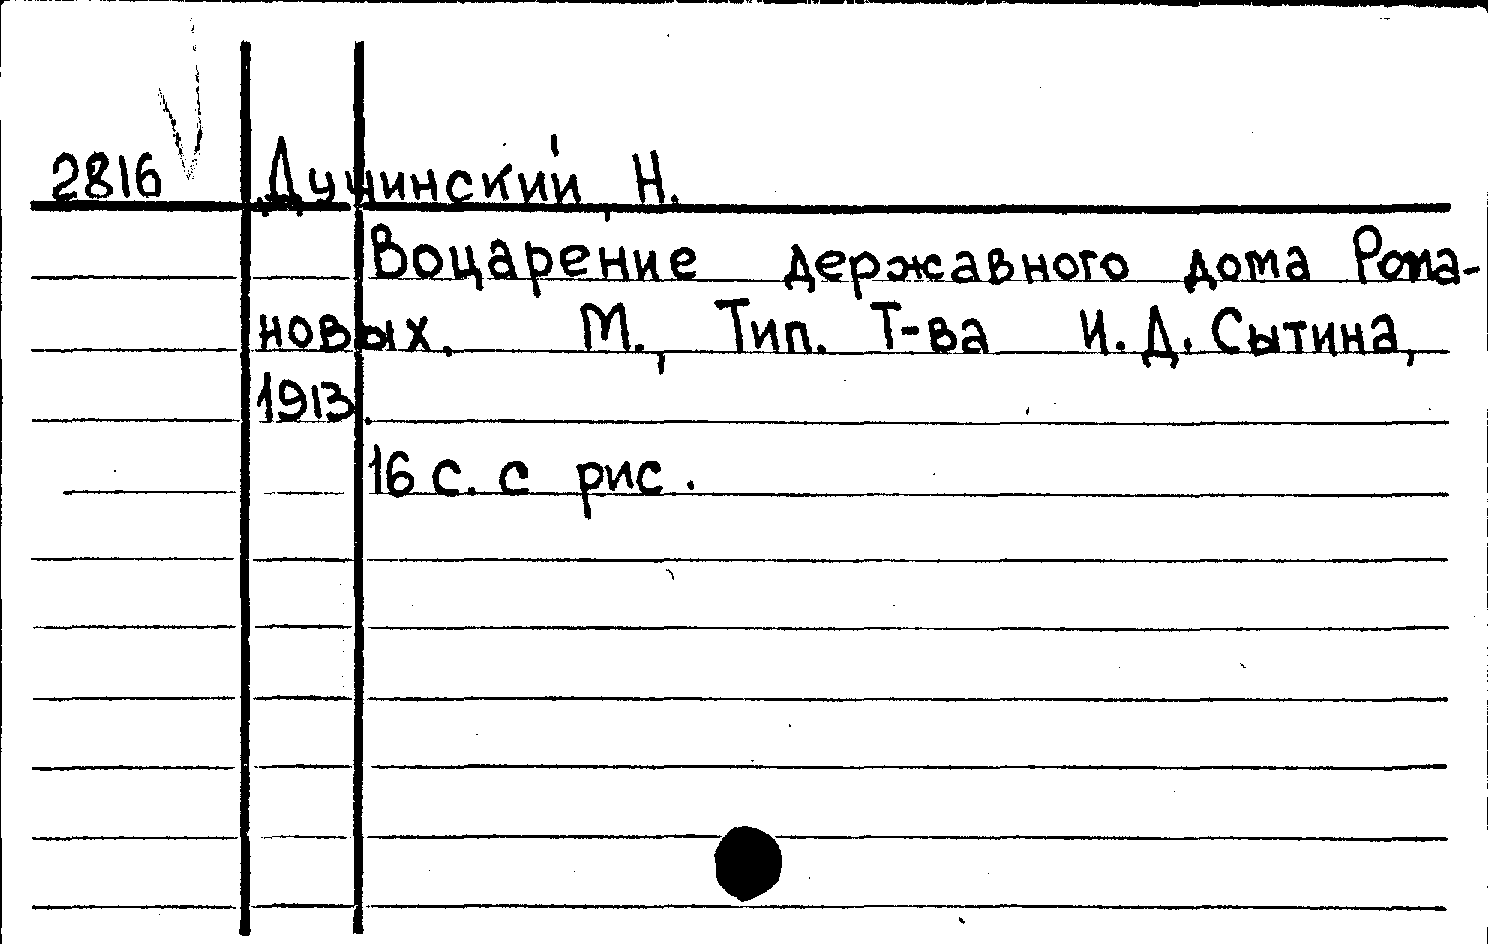 2816 Дучинский, Н.
Воцарение державного дома Рома-
новых. М., Тип. Т-ва И. Д. Сытина,
1913.
16 с. с рис.